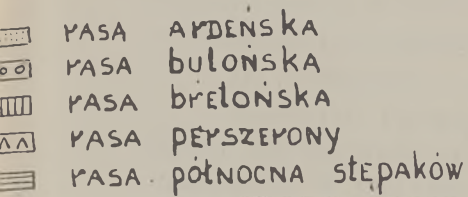 rasa ardeńska
rasa bulońska
rasa bretońska
rasa perszerony
rasa północna stępaków